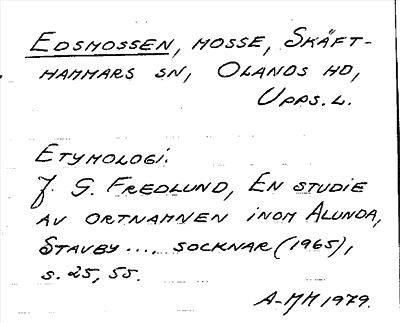 EDSMOSSEN, MOSSE, SKÄFT-
HAMMARS SN, OLANDS HD,
UPPS. L.
ETYMOLOGI:
J. G. FREDLUND, EN STUDIE
AV ORTNAMNEN INOM ALUNDA,
STAVBY .... SOCKNAR (1965),
S. 25, 55.
A-MM 1979.